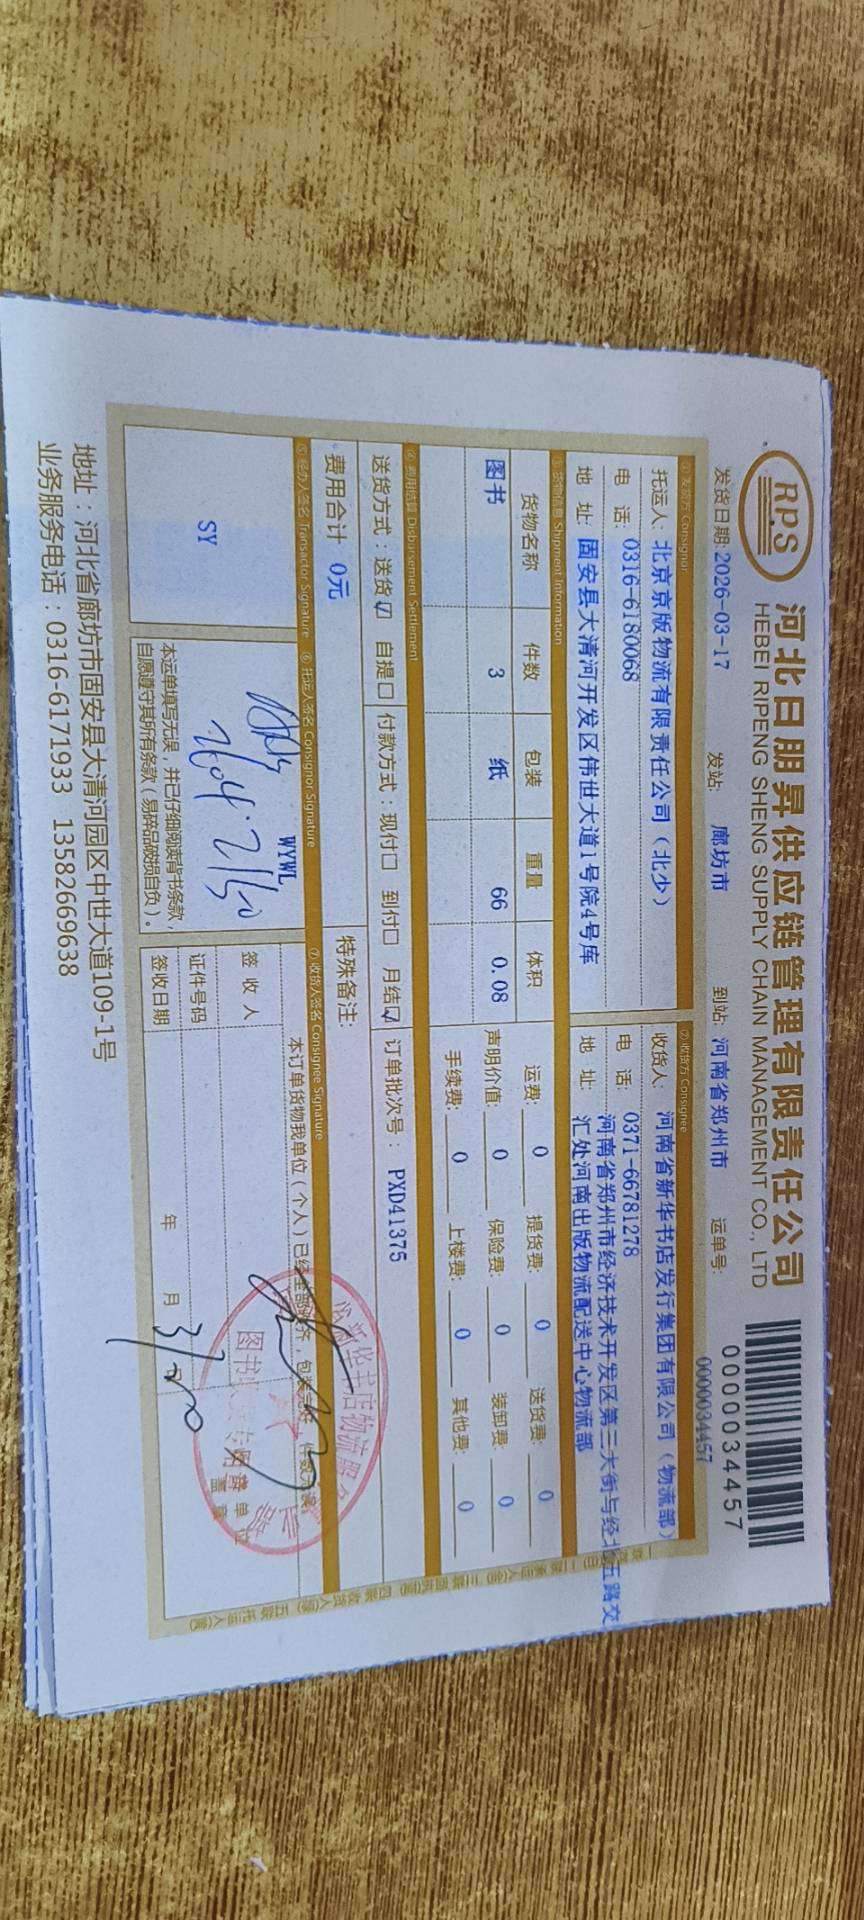 RPS
河北日朋昇供应链管理有限责任公司
HEBEI RIPENG SHENG SUPPLY CHAIN MANAGEMENT CO., LTD
0000034457
发货日期:2026-03-17 发站: 廊坊市 到站: 河南省郑州市 运单号: 0000034457
① 发货方 Consignor ② 收货方 Consignee
托运人: 北京京版物流有限责任公司（北少） 收货人: 河南省新华书店发行集团有限公司（物流部）
电 话: 0316-6180068 电 话: 0371-66781278
地 址: 固安县大清河开发区伟世大道1号院4号库 地 址: 河南省郑州市经济技术开发区第三大街与经北五路交
汇处河南出版物流配送中心物流部
③ 货物信息 Shipment Information
货物名称 件数 包装 重量 体积 运费: 0 提货费: 0 送货费: 0
图书 3 纸 66 0.08 声明价值: 0 保险费: 0 装卸费: 0
手续费: 0 上楼费: 0 其他费: 0
④ 费用结算 Disbursement Settlement
送货方式：送货☑ 自提□ 付款方式：现付□ 到付□ 月结☑ 订单批次号： PXD41375
费用合计 0元 特殊备注:
⑤ 经办人签名 Transactor Signature ⑥ 托运人签名 Consignor Signature ⑦ 收货人签名 Consignee Signature
SY
WYWL
本运单填写无误，并已仔细阅读背书条款，
自愿遵守其所有条款（易碎品破损自负）。
本订单货物我单位（个人）已经全部收齐，包装完好
签收人
证件号码 单位
盖章
签收日期 年 月
3/20
地址：河北省廊坊市固安县大清河园区中世大道109-1号
业务服务电话：0316-6171933 13582669638